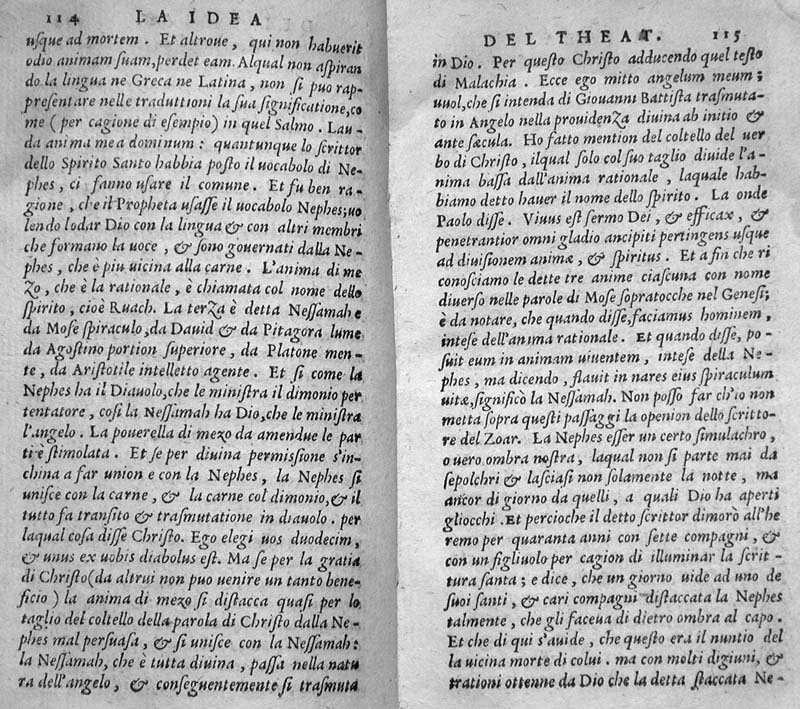 114 LA IDEA
uſque ad mortem. Et altroue, qui non habuerit
odio animam ſuam, perdet eam. Alqual non aſpiran
do la lingua ne Greca ne Latina, non ſi puo rap-
preſentare nelle traduttioni la ſua ſignificatione, co
me (per cagione di eſempio) in quel Salmo. Lau-
da anima mea dominum: quantunque lo ſcrittor
dello Spirito Santo habbia poſto il uocabolo di Ne-
phes, ci fanno uſare il comune. Et fu ben ra-
gione, che il Propheta uſaſſe il uocabolo Nephes; uo
lendo lodar Dio con la lingua & con altri membri
che formano la uoce, & ſono gouernati dalla Ne-
phes, che è piu uicina alla carne. L'anima di me
zo, che è la rationale, è chiamata col nome dello
ſpirito, cioè Ruach. La terza è detta Neſſamah e
da Moſe ſpiraculo, da Dauid & da Pitagora lume
da Agoſtino portion ſuperiore, da Platone men-
te, da Ariſtotile intelletto agente. Et ſi come la
Nephes ha il Diauolo, che le miniſtra il dimonio per
tentatore, coſi la Neſſamah ha Dio, che le miniſtra
l'angelo. La pouerella di mezo da amendue le par
ti è ſtimolata. Et ſe per diuina permiſſione s'in-
china a far union e con la Nephes, la Nephes ſi
uniſce con la carne, & la carne col dimonio, & il
tutto fa tranſito & traſmutatione in diauolo. per
laqual coſa diſſe Chriſto. Ego elegi uos duodecim,
& unus ex uobis diabolus eſt. Ma ſe per la gratia
di Chriſto (da altrui non puo uenire un tanto bene-
ficio) la anima di mezo ſi diſtacca quaſi per lo
taglio del coltello della parola di Chriſto dalla Ne-
phes mal perſuaſa, & ſi uniſce con la Neſſamah:
la Neſſamah, che è tutta diuina, paſſa nella natu
ra dell'angelo, & conſeguentemente ſi traſmuta
DEL THEAT. 115
in Dio. Per queſto Chriſto adducendo quel teſto
di Malachia. Ecce ego mitto angelum meum;
uuol, che ſi intenda di Giouanni Battiſta traſmuta-
to in Angelo nella prouidenza diuina ab initio &
ante ſæcula. Ho fatto mention del coltello del uer
bo di Chriſto, ilqual ſolo col ſuo taglio diuide l'a-
nima baſſa dall'anima rationale, laquale hab-
biamo detto hauer il nome dello ſpirito. La onde
Paolo diſſe. Viuus eſt ſermo Dei, & efficax, &
penetrantior omni gladio ancipiti pertingens uſque
ad diuiſionem animæ, & ſpiritus. Et a fin che ri
conoſciamo le dette tre anime ciaſcuna con nome
diuerſo nelle parole di Moſe ſopratocche nel Geneſi;
è da notare, che quando diſſe, faciamus hominem,
inteſe dell'anima rationale. Et quando diſſe, po-
ſuit eum in animam uiuentem, inteſe della Ne-
phes, ma dicendo, flauit in nares eius ſpiraculum
uitæ, ſignificò la Neſſamah. Non poſſo far ch'io non
metta ſopra queſti paſſaggi la openion dello ſcritto-
re del Zoar. La Nephes eſſer un certo ſimulachro,
o uero ombra noſtra, laqual non ſi parte mai da
ſepolchri & laſciaſi non ſolamente la notte, ma
ancor di giorno da quelli, a quali Dio ha aperti
gliocchi. Et percioche il detto ſcrittor dimorò all'he
remo per quaranta anni con ſette compagni, &
con un figliuolo per cagion di illuminar la ſcrit-
tura ſanta; e dice, che un giorno uide ad uno de
ſuoi ſanti, & cari compagni diſtaccata la Nephes
talmente, che gli faceua di dietro ombra al capo.
Et che di qui s'auide, che queſto era il nuntio del
la uicina morte di colui. ma con molti digiuni, &
trationi ottenne da Dio che la detta ſtaccata Ne-